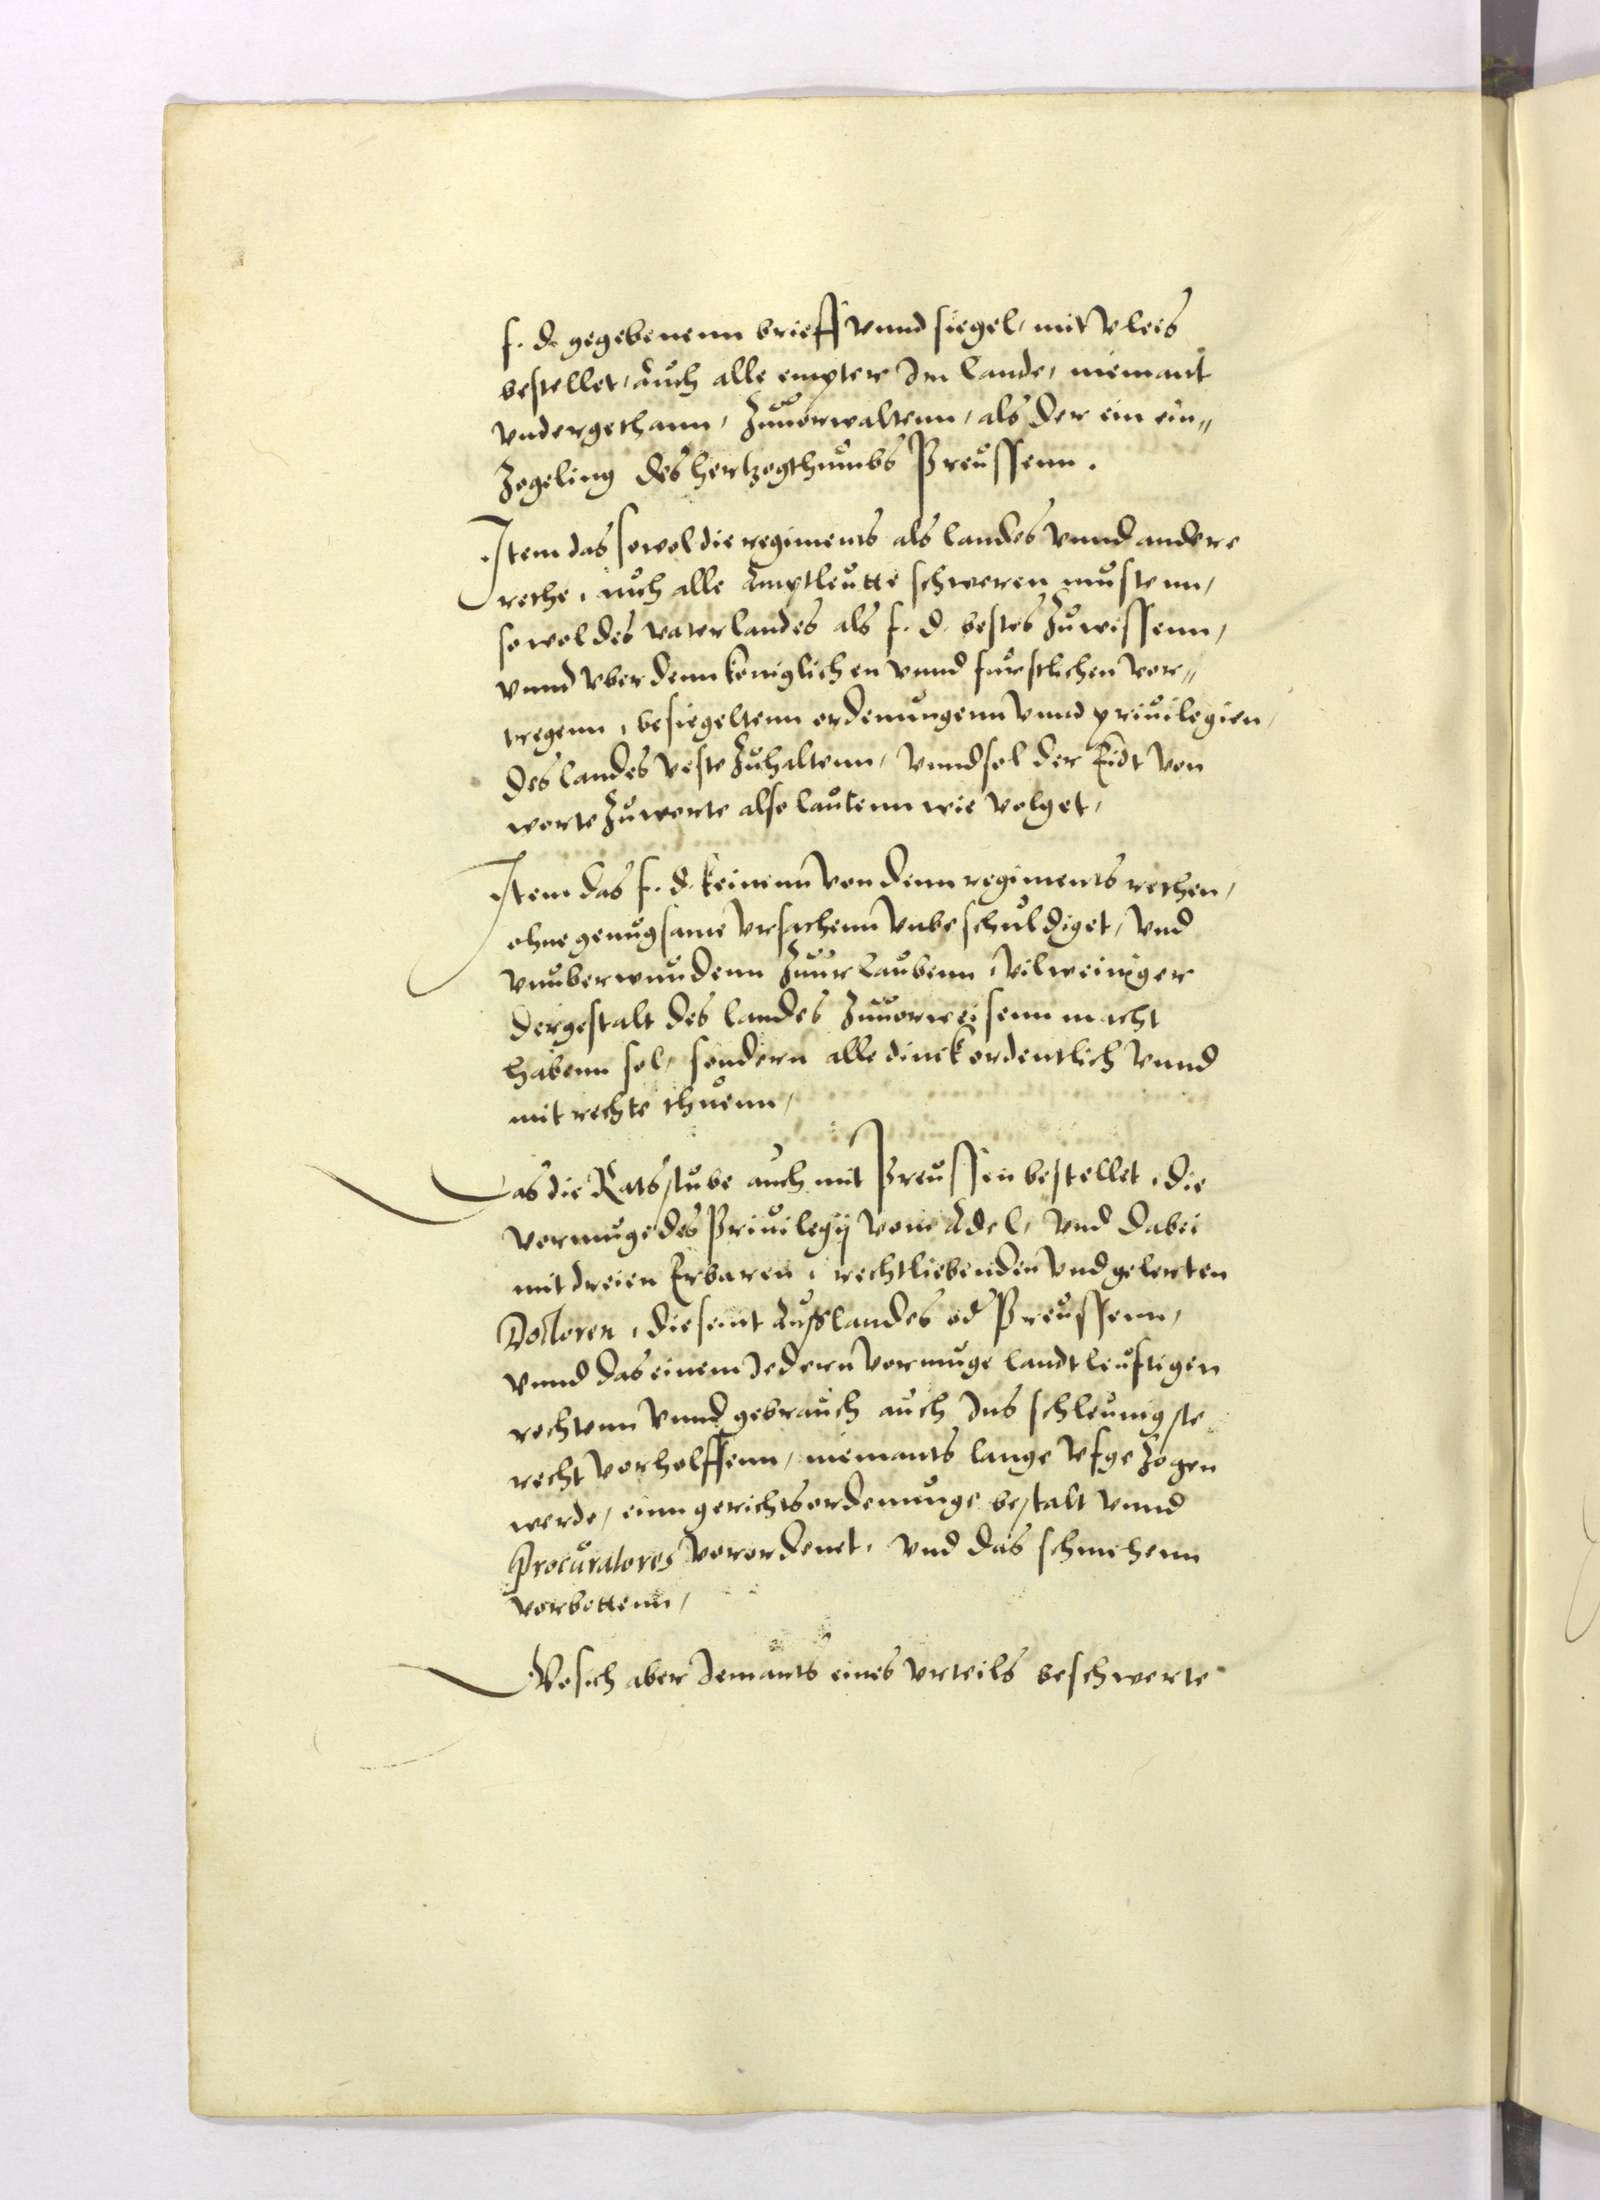 f. d. gegebenenn brieff vnnd siegel, mit vleis
bestellet, Auch alle empter Im lande, niemant
vndergethann, Zuuorwaltenn, als der ein ein„
Zogeling des hertzogthumbs Preussenn.
Item das sowol die regiments als landes vnnd andere
rethe, auch alle Amptleutte schweren mustenn,
sowol des vaterlandes als f. d. bestes Zuwissenn,
vnnd vber denn königlichen vnnd furstlichen vor„
tregenn, besiegeltenn ordenungenn vnnd priuilegien,
des landes veste Zuhaltenn, vnnd sol der Eidt von
worte Zuworte also lautenn wie volget,
Item das f. d. keinenn von denn regiments rethen,
ohne genugsame vrsachenn vnbeschuldiget, vnd
vnuberwundenn Zuurlaubenn, vilweiniger
dergestalt des landes Zuuorweisenn macht
habenn sol, sondern alle dinck ordentlich vnnd
mit rechte thuenn,
Das die Ratsstube auch mit Preussen bestellet, die
vormuge des Priuilegij vom Adel, vnd dabei
mit dreien Erbaren, rechtliebenden vnd gelerten
Doctoren, die seint Auslandes od Preussenn,
vnnd das einem Jedernn vormuge landtleuftigen
rechtenn vnnd gebrauch auch Ins schleunigste
recht vorholffenn, niemants lange vfgezogen
werde, einn gerichtsordenunge bestalt vnnd
Procuratores vorordenet, vnd das schmehenn
vorbottenn,
Wo sich aber Jemants eines vrteils beschwerte